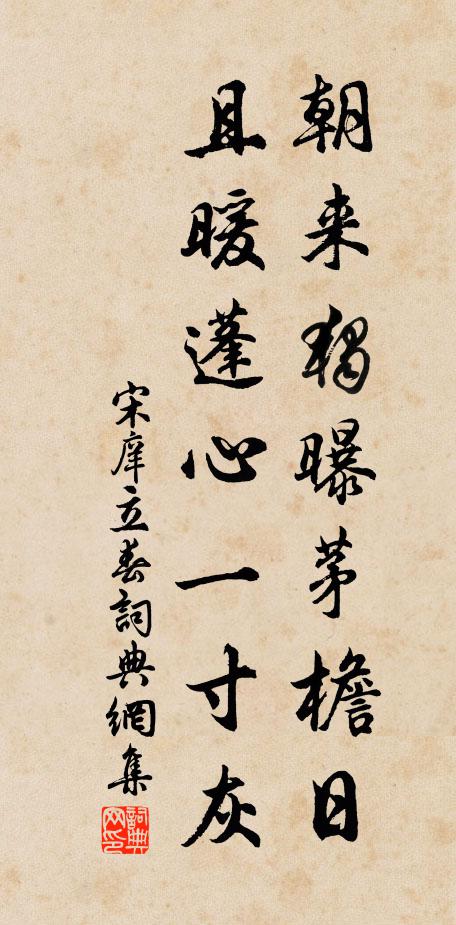 朝来獨曝茅檐日
且暖蓬心一寸灰
宋庠立春詞典網集
詞典网印